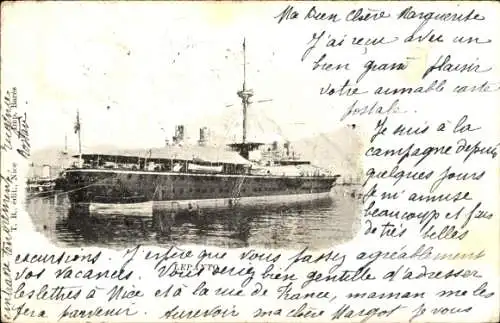 Ma bien chère Marguerite
J'ai reçu avec un
bien grand plaisir
votre aimable carte
postale.
Je suis à la
campagne depuis
quelques jours
je m'y amuse
beaucoup et fais
de très belles
excursions. J'espère que vous passez agréablement
vos vacances. Vous serez bien gentille d'adresser
les lettres à Nice et à la rue de France, maman me les
fera parvenir. Au revoir ma chère Margot je vous
embrasse
LEPANTO
Nice